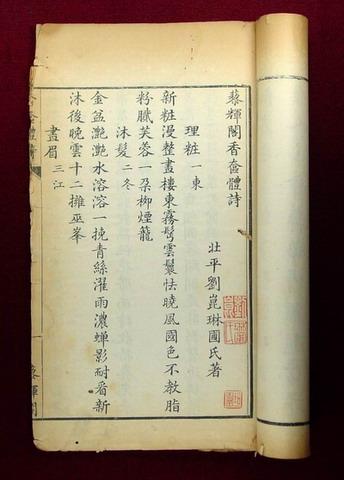 藜輝閣香奩體詩
壯平劉崑琳圃氏著
理粧 一東
新粧漫整畫樓東霧鬢雲鬟怯曉風國色不教脂
粉膩芙蓉一朶柳煙籠
沐髮 二冬
金盆灔灔水溶溶一挽青絲濯雨濃蟬影耐看新
沐後晚雲十二擁巫峯
畫眉 三江